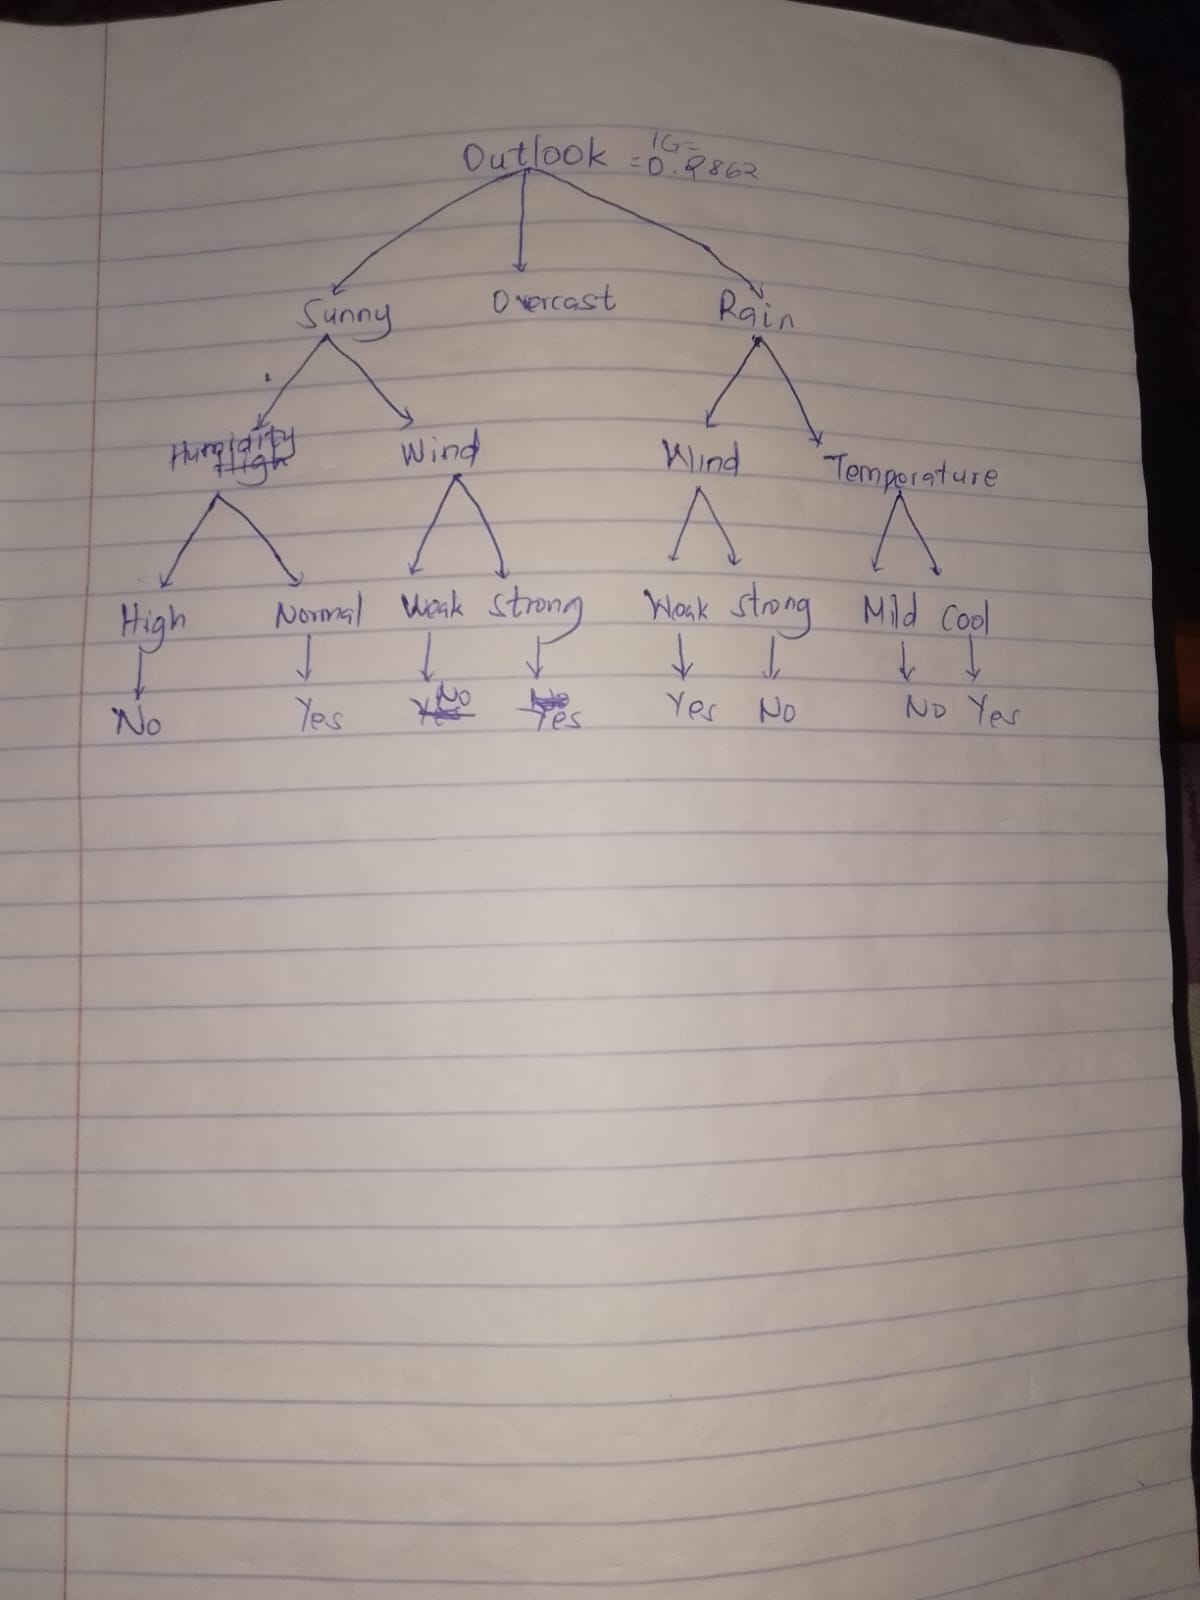 IG=
Outlook =0.2862
Sunny Overcast Rain
Humidity Wind Wind Temperature
High
High Normal Weak Strong Weak Strong Mild Cool
No Yes No Yes Yes No No Yes